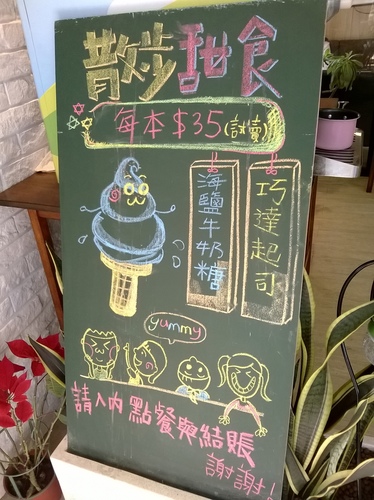 散步甜食
每本$35(試賣)
海鹽牛奶糖
巧達起司
yummy
請入內點餐與結賬
謝謝!